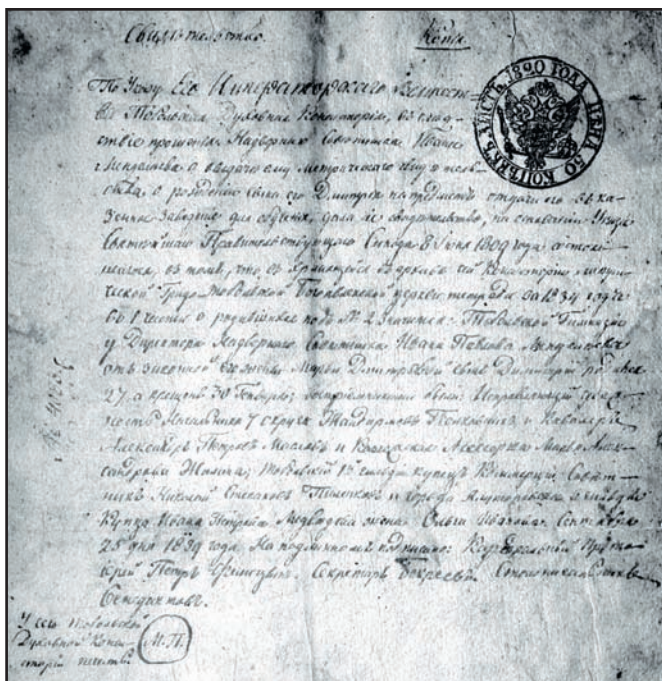 Свидѣтельство. Копія
По Указу Его Императорскаго Величест-
ва Тобольская Духовная Консисторія, въ слѣд-
ствіе прошенія Надворнаго Совѣтника Ивана
Менделѣева о выдачѣ ему Метрическаго свидѣтель-
ства о рожденіи сына его Димитрія на предметъ отдачи его въ ка-
зенное заведеніе для обученія, дала сіе свидѣтельство, на основаніи Указа
Святѣйшаго Правительствующаго Синода 8 1809 года состояв-
въ томъ, что въ хранящейся въ архивѣ сей Консисторіи метри-
ческой Градо-Тобольской Богоявленской церкви тетради за 1834 годъ
въ 1 части о родившихся подъ № 2 значится: Тобольской Гимназіи
у Директора Надворнаго Совѣтника Ивана Павлова Менделѣева
отъ законной его жены Марьи Дмитріевой сынъ Димитрій родился
27, а крещенъ 30 Генваря; воспріемниками были: Исправляющій долж-
ность Начальника 7 округа Жандармовъ Полковникъ и Кавалеръ
Александръ Петровъ Масловъ и Ассесорша Марья Алек-
сандрова Жилина; Тобольскій купецъ Коммерціи Совѣт-
никъ Николай Степановъ Пиленковъ и города Ялуторовска
Купца Ивана Петрова Медвѣдева жена Ольга Иванова. Сентября
25 дня 1839 года. На подлинномъ подписано: Каѳедральный Прото-
іерей Петръ Фелицынъ. Секретарь Столоначальникъ
Бенедиктовъ.
У сего Тобольской
Духовной Конси-
сторіи печать
М.П.
ЛИСТЪ 1820 ГОДА ЦѢНА 50 КОПѢЕКЪ